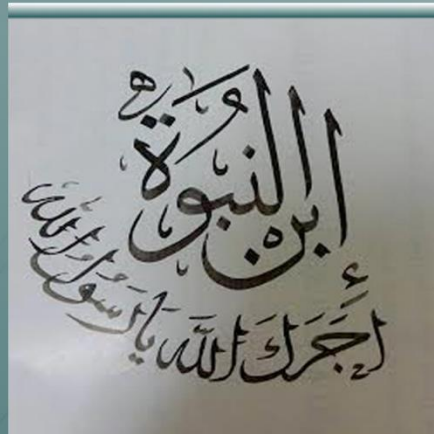 إبن النبوة
اجرك الله يا رسول الله